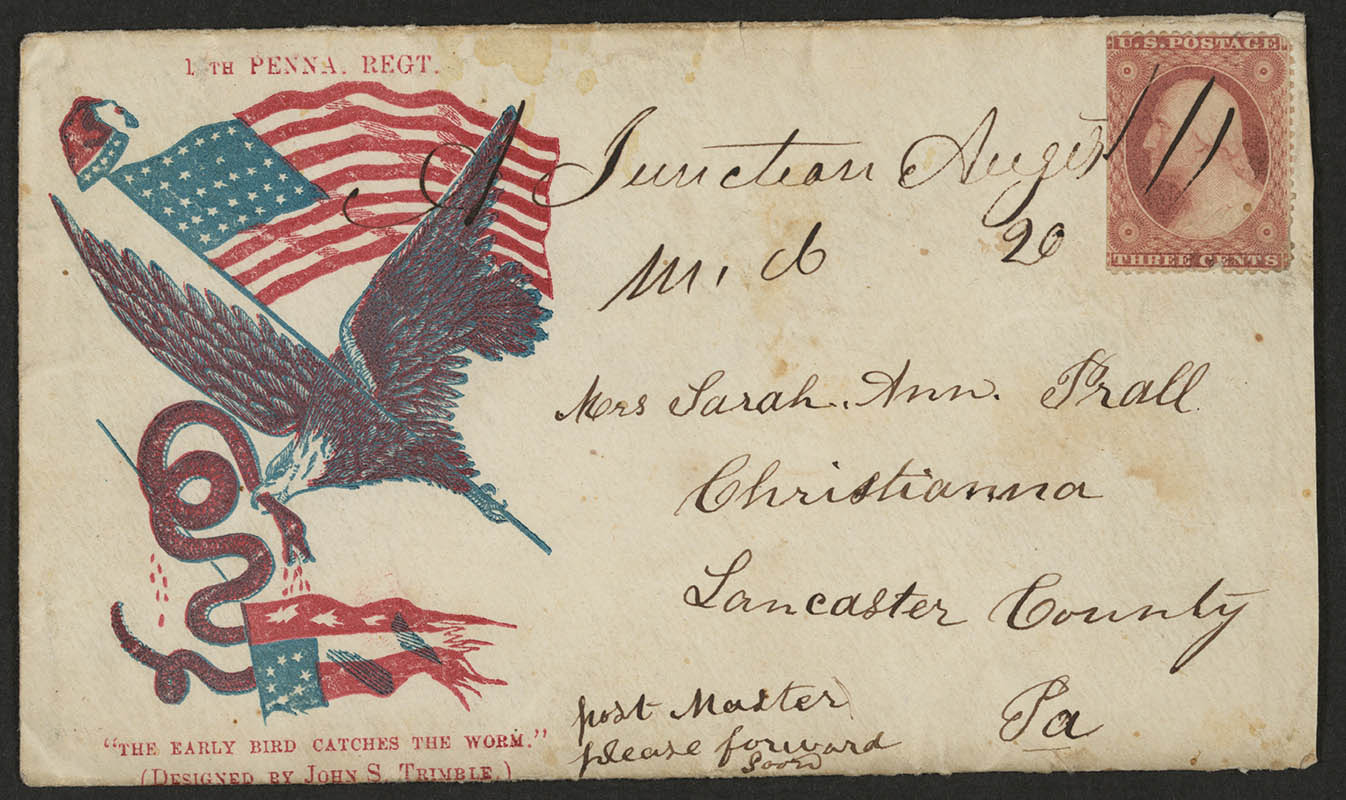 1 TH PENNA. REGT.
U.S. POSTAGE
THREE CENTS
A Junction Augst
20
Mrs Sarah. Ann. Prall
Christianna
Lancaster County
Pa
post Master
please forward
Soon
"THE EARLY BIRD CATCHES THE WORM."
(DESIGNED BY JOHN S. TRIMBLE.)